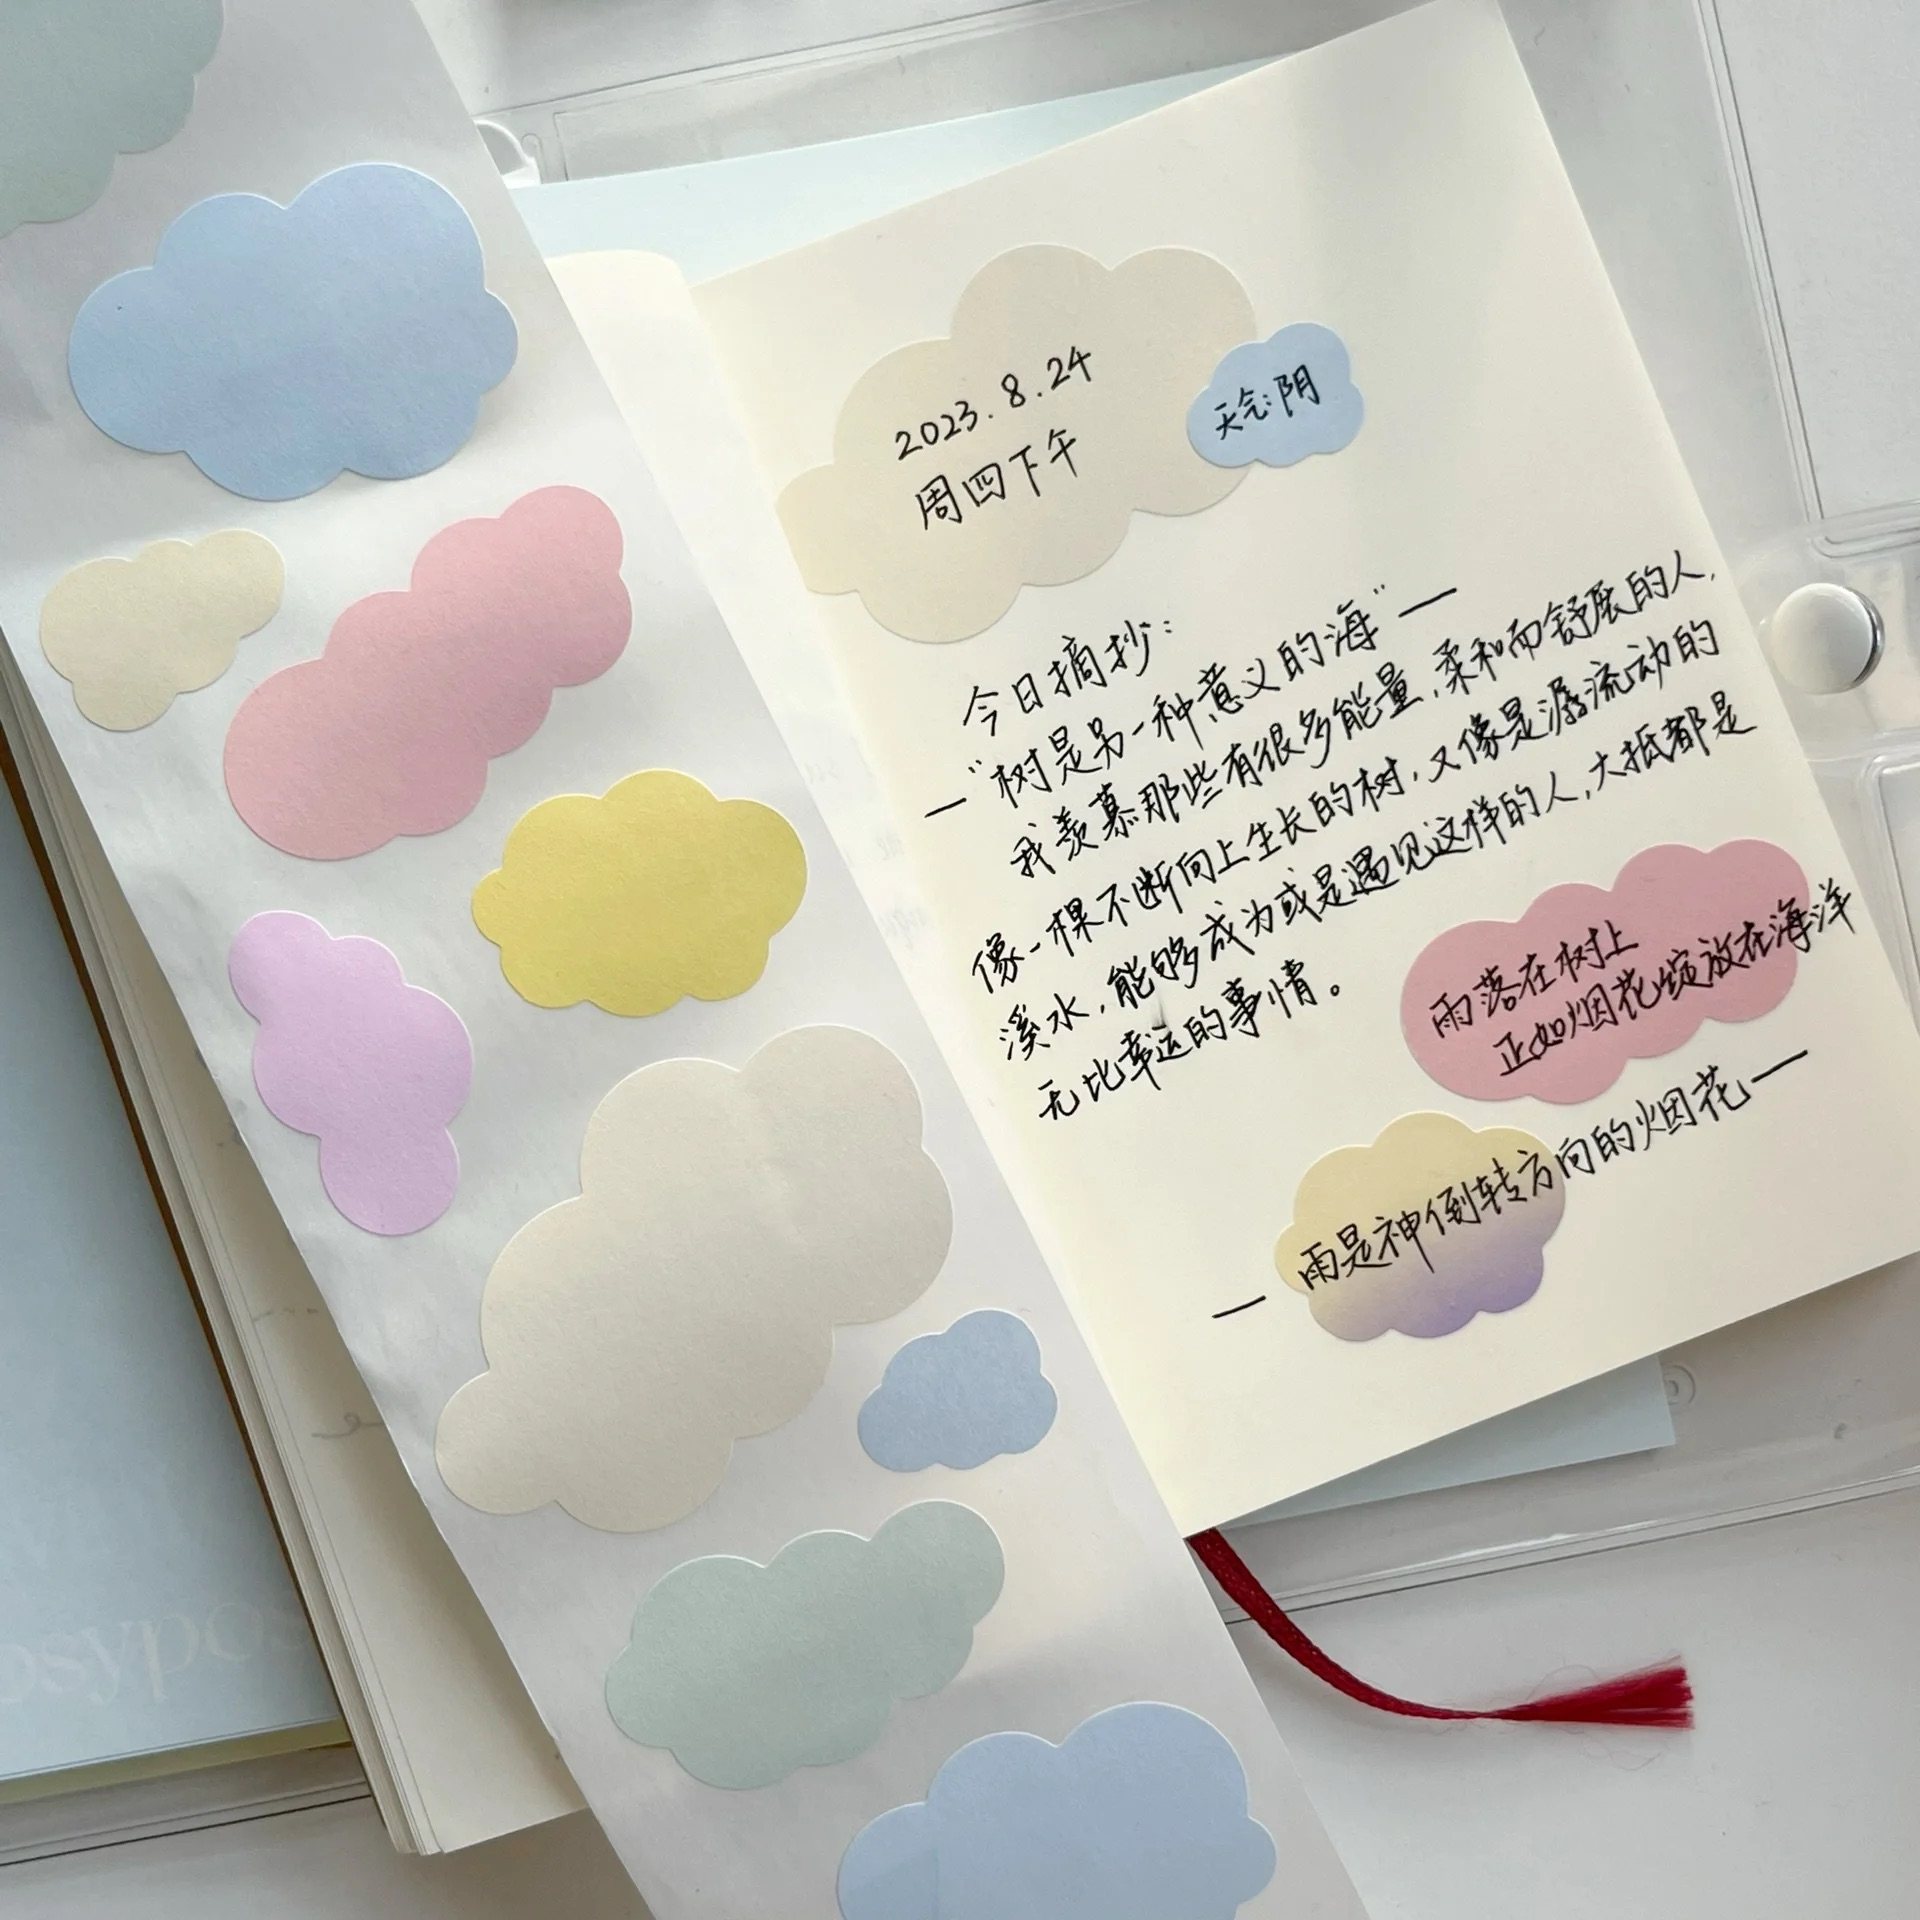 2023.8.24
周四下午
天气:阴
今日摘抄：
—“树是另一种意义的海”—
我羡慕那些有很多能量，柔和而舒展的人，
像一棵不断向上生长的树，又像是潺流动的
溪水，能够成为或是遇见这样的人，大抵都是
无比幸运的事情。
雨落在树上
正如烟花绽放在海洋
—雨是神倒转方向的烟花—